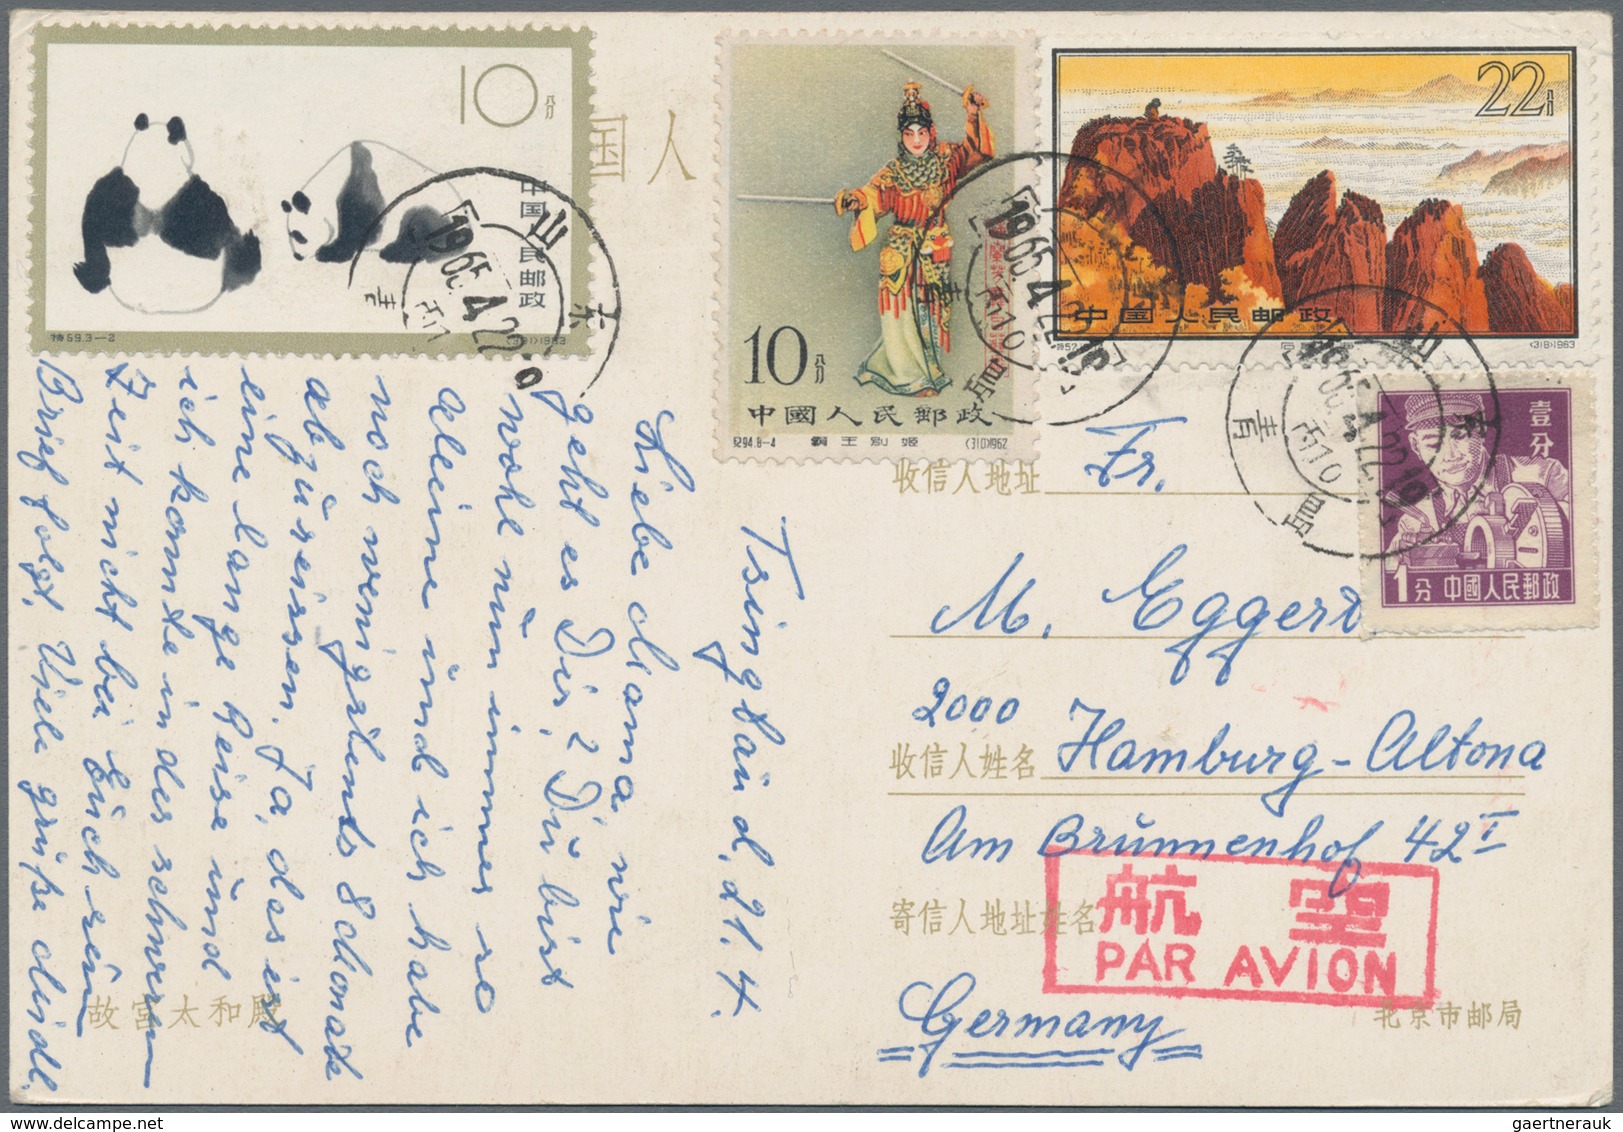 10分
中国人民邮政
特59.3-2
(391)1963
国人
10分
中國人民郵政
纪94.8-4 霸王别姬 (310)1962
22分
中国人民邮政
特57.
(318)1963
壹分
1分 中國人民郵政
山东
青
岛
1965.4.22.10
山东
青
岛
1965.4.22.10
山东
青
岛
1965.4.22.10
Tsingtau d. 21.4.
Liebe Mama, wie
geht es Dir? Du bist
wohl nun immer so
alleine und ich habe
noch wenigstens 8 Monate
abzureissen. Ja, das ist
eine lange Reise und
ich konnte in der schweren
Zeit nicht bei Euch sein
Brief folgt. Viele Grüße
收信人地址 Fr.
M. Eggert
2000
收信人姓名 Hamburg-Altona
Am Brunnenhof 42 I
寄信人地址姓名
航空
PAR AVION
Germany
故宫太和殿
北京市邮局
gaertnerauk - delcampe.net